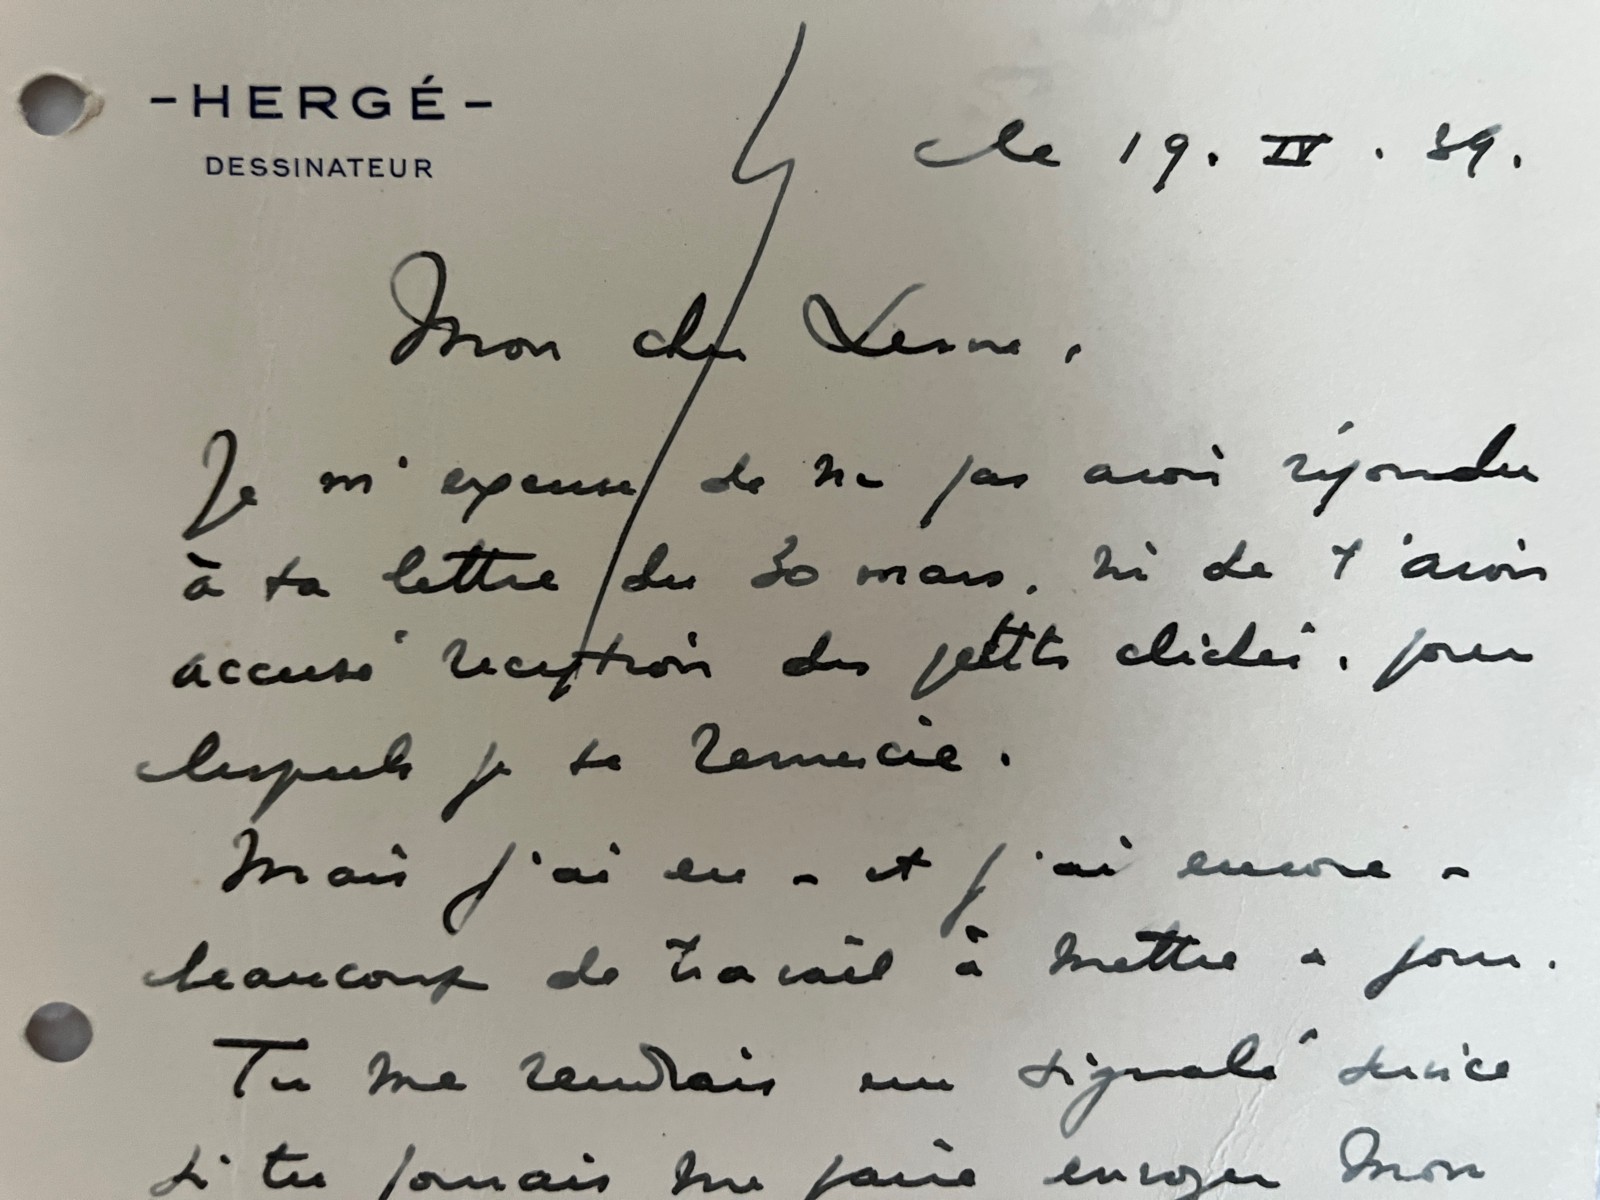 - HERGÉ -
DESSINATEUR
le 19. IV. 39.
Mon cher Lesne,
Je m'excuse de ne pas avoir répondu
à ta lettre du 30 mars, ni de t'avoir
accusé réception des petits clichés, pour
lesquels je te remercie.
Mais j'ai eu - et j'ai encore -
beaucoup de travail à mettre à jour.
Tu me rendrais un signalé service
si tu pouvais me faire envoyer mon